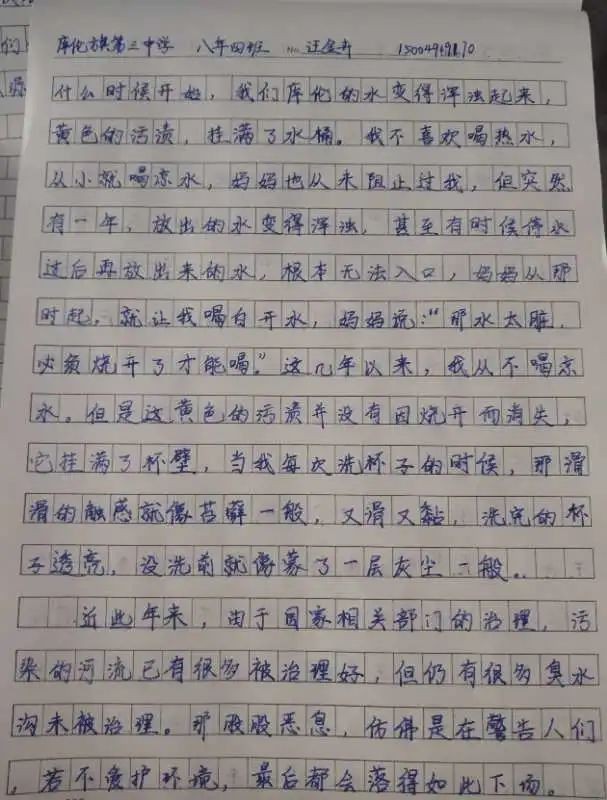 库伦旗第三中学 八年四班 No 汪金卉
什么时候开始，我们库伦的水变得浑浊起来，
黄色的污渍，挂满了水桶。我不喜欢喝热水，
从小就喝凉水，妈妈也从未阻止过我，但突然
有一年，放出的水变得浑浊，甚至有时候停水
过后再放出来的水，根本无法入口，妈妈从那
时起，就让我喝白开水，妈妈说：“那水太脏，
必须烧开了才能喝。”这几年以来，我从不喝凉
水。但是这黄色的污渍并没有因烧开而消失，
它挂满了杯壁，当我每次洗杯子的时候，那滑
滑的触感就像苔藓一般，又滑又黏，洗完的杯
子透亮，没洗前就像蒙了一层灰尘一般。
近些年来，由于国家相关部门的治理，污
染的河流已有很多被治理好，但仍有很多臭水
沟未被治理。那股股恶息，仿佛是在警告人们
，若不爱护环境，最后都会落得如此下场。